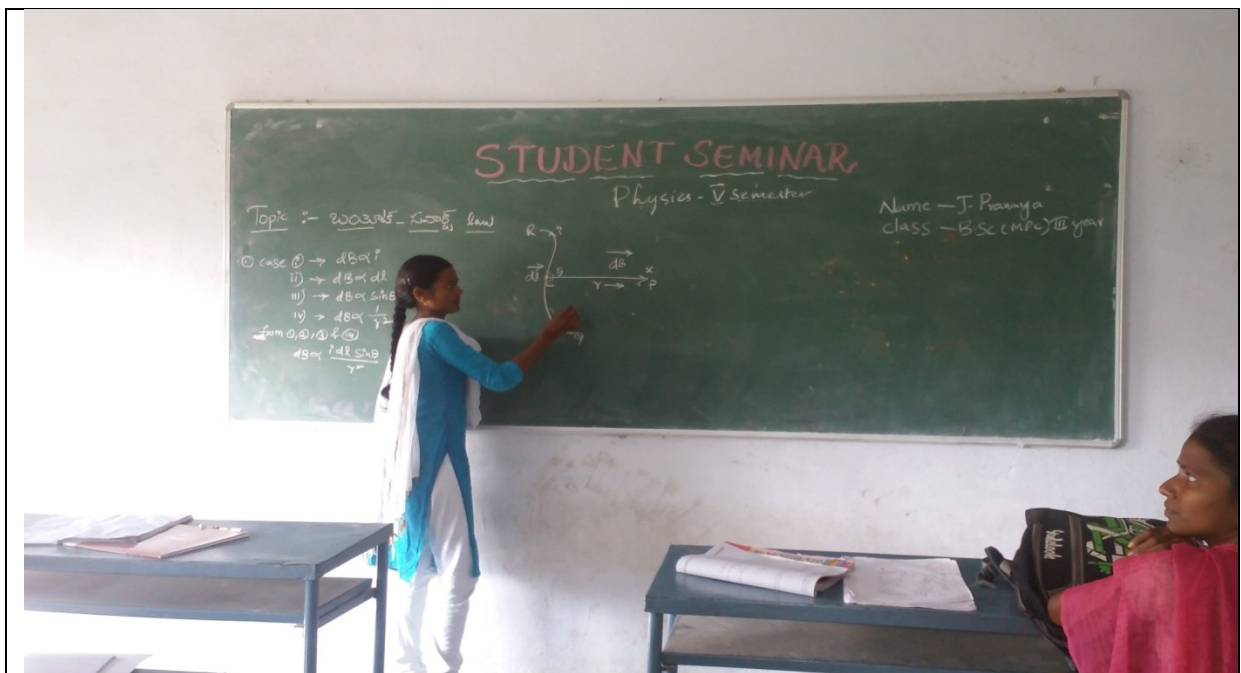 STUDENT SEMINAR
Physics - V semester
Name - J. Pranaya
class - B.Sc (MPC) III year
Topic :- బయాట్ - సవార్ట్ law
① case ① → dB ∝ i
ii) → dB ∝ dl
iii) → dB ∝ sinθ
iv) → dB ∝ 1/r²
from ①, ②, ③ & ④
dB ∝ i dl sinθ / r²
R
dB
dl
θ
X
r →
P